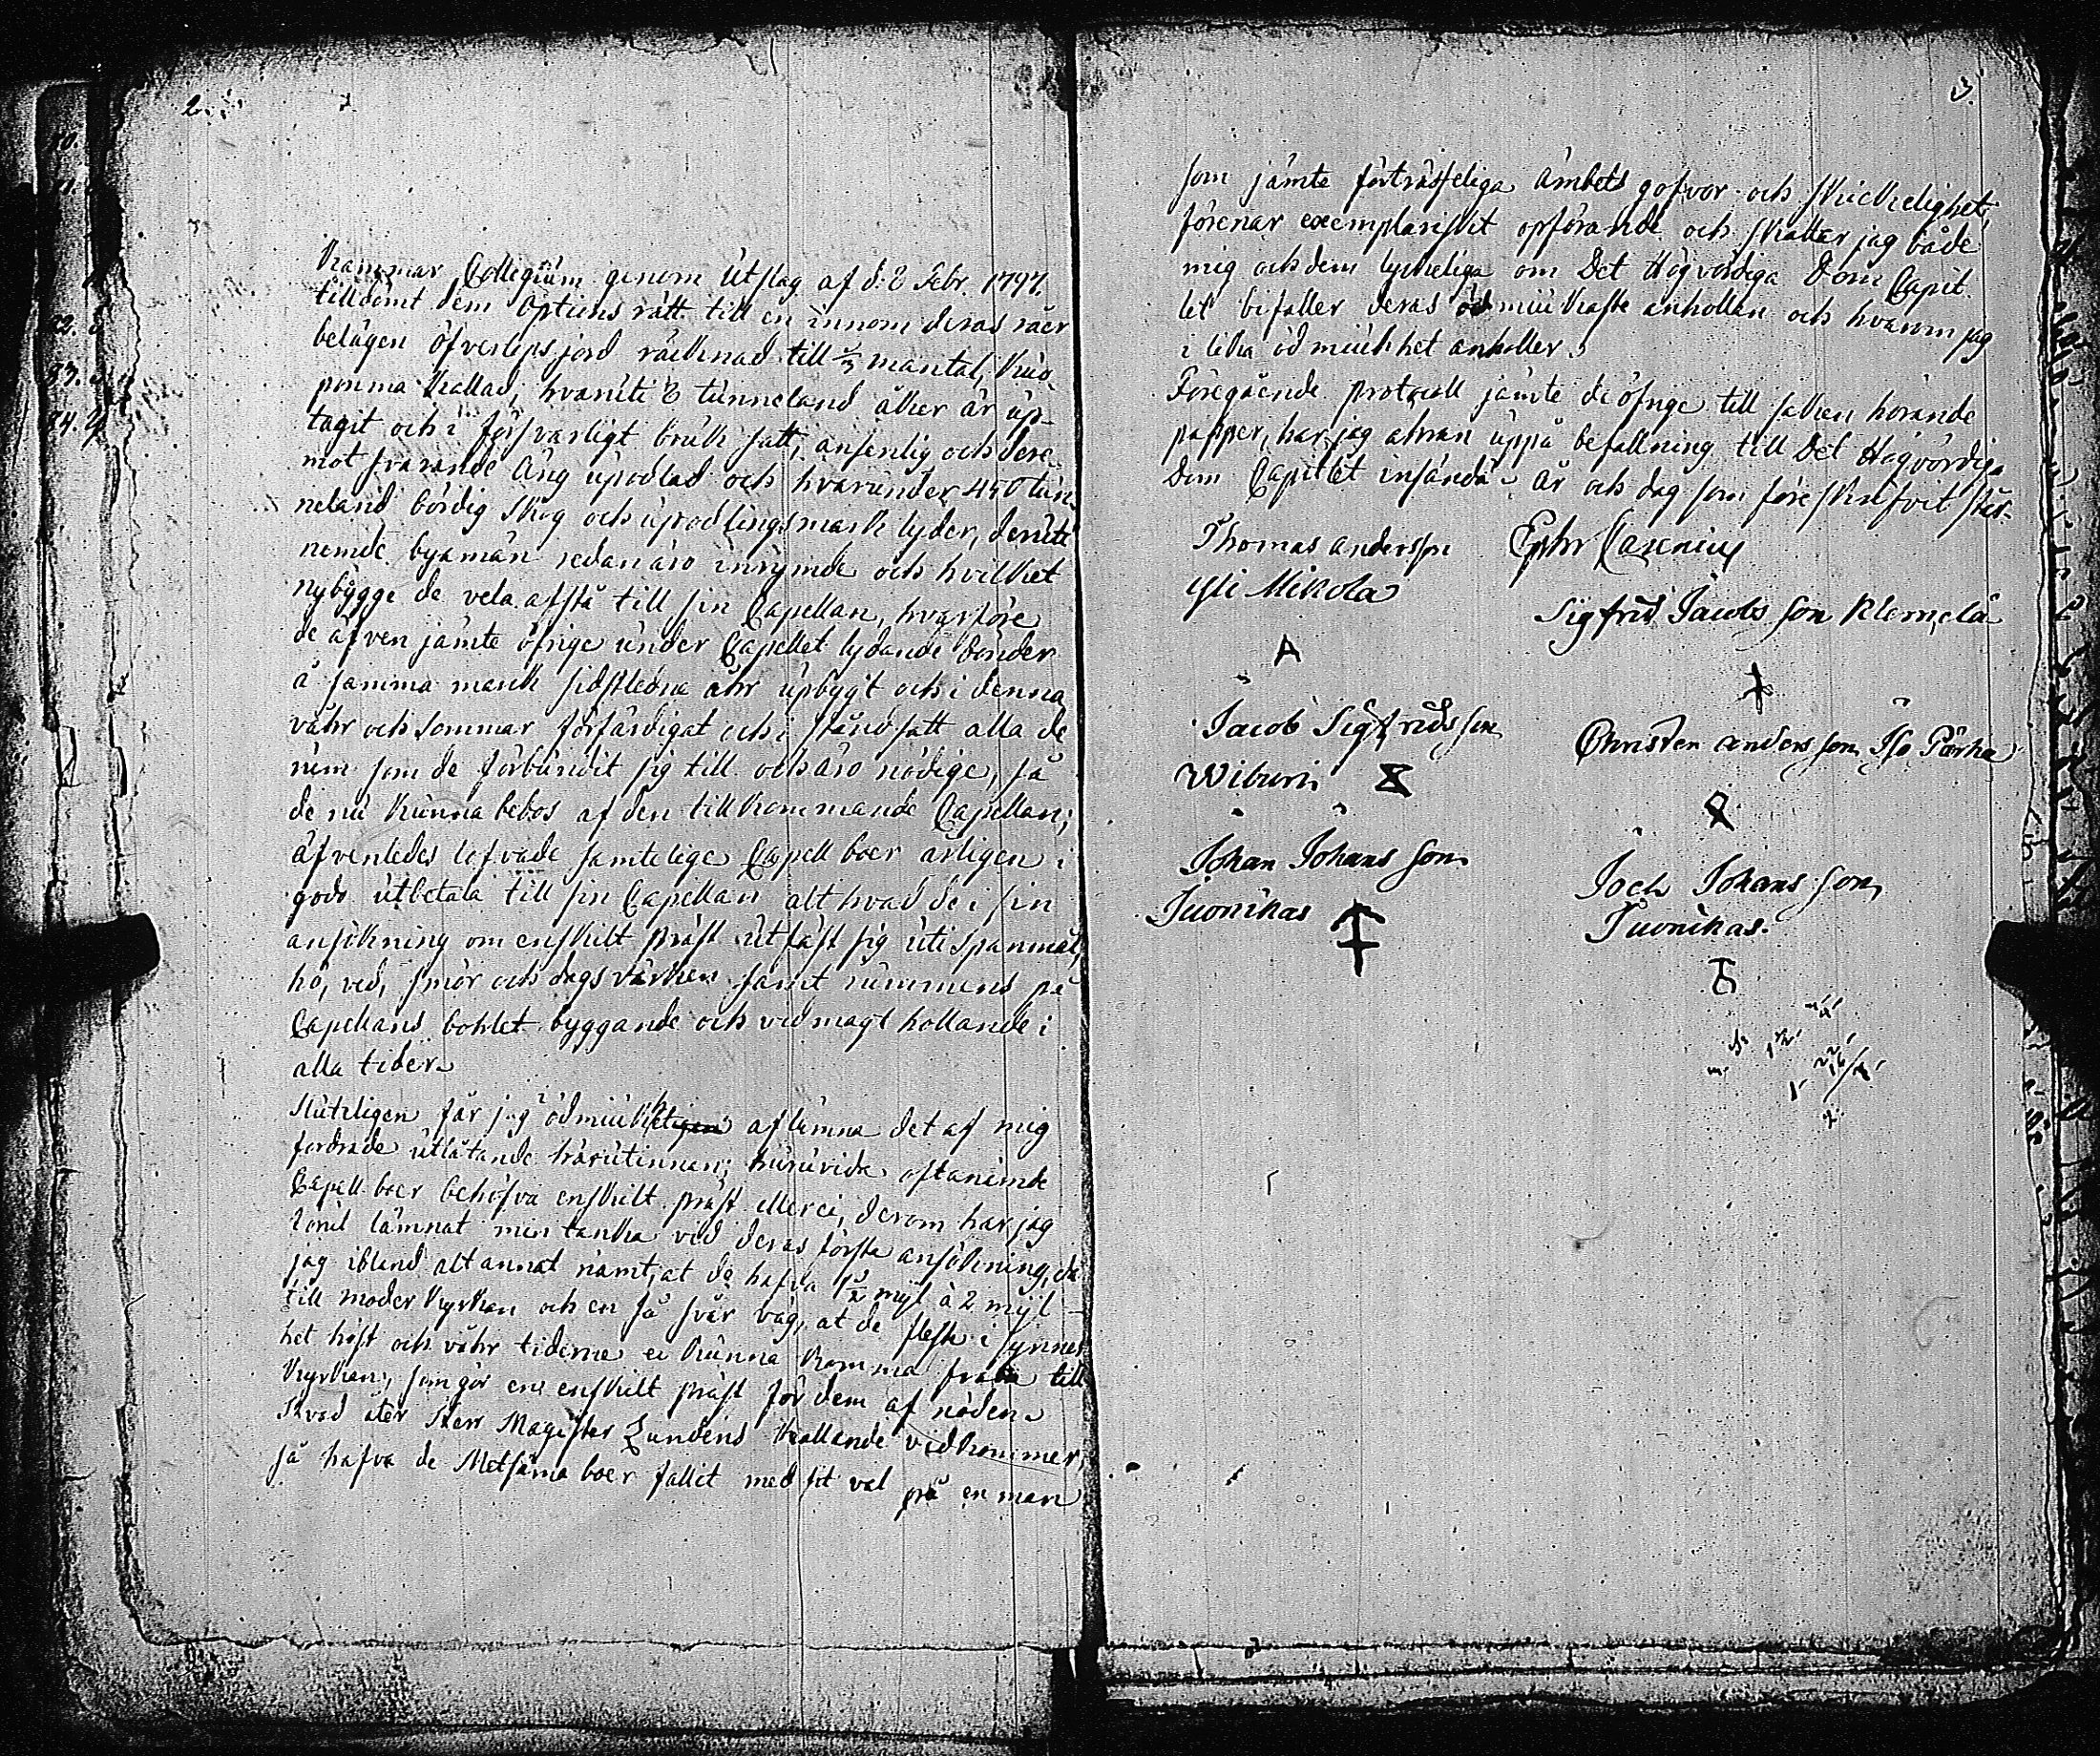 2.
Kammar Collegium genom Utslag af d. 8 Febr. 1797.
tilldömt dem Optiens rätt till en innom deras råer
belägen öfverlops jord räcknad till mantal,
ponma kallad, hvaruti 8 tunneland åker är up-
tagit och i försvarligt bruk satt, ansenlig och dere-
mot svarande äng upodlad och hvarunder 450 tun-
neland bördig skog och upodlings mark lyder, deruti
nemde byamän redan äro inrymde och hvilket
nybygge de vela afstå till sin Capellan, hvarföre
de äfven jämte öfrige under Capellet lydande bönder
å samma mark sidstledna åhr upbygt och i denna
våhr och sommar förfärdigat och i stånd satt alla de
rum som de förbundit sig till och äro nödige, så
de nu kunna bebos af den tillkommande Capellan;
äfvenledes lofvade samtelige Capell boer årligen i
godo utbetala till sin Capellan alt hvad de i sin
ansökning om enskilt präst utfäst sig uti Spanmål,
hö, ved, smör och dags värken samt rummens på
Capellans bohlet byggande och vid magt hollande i
alla tider.
Slutligen får jag ödmiuk aflemna det af mig
fordrade utlåtande härutinnan; huruvida oftanemde
Capell boer behöfva enskilt präst eller ei, derom har jag
lämnat min tanka vid deras första ansökning, då
jag ibland alt annat nämt, at de hafva 1½ mijl à 2 mijl
till moder kyrkan och en så svår väg, at de fleste i synner-
het höst och våhr tiderne ei kunna komma fram till
kyrkan, som gör en enskilt präst för dem af nöden.
Hvad åter Herr Magister Lundens kallande vidkommer,
så hafva de Metsäma boer fallit med sit val på en man
3.
som jämte förträffeliga ämbets gofvor och skickelighet,
förenar exemplariskt opförande och skattar jag både
mig och dem lyckeliga om Det Högvördiga Dom Capit-
let bifaller deras ödmiukaste anhollan och hvarom jag
i lika ödmiukhet anholler.
Föregående protocoll jämte de öfrige till saken hörande
papper, har jag ähran uppå befallning till Det Högvördiga
Dom Capitlet insända. År och dag som föreskrifvit står.
Thomas andersson Ephr Caxenius
Yli Mikola
Sigfrid Jacobs son Klemelä
Jacob Sigfridsson
Christer anders son Iso Pärha
Wiburi
Johan Johans son
Juonikas
Joch Johans son
Juonikas.